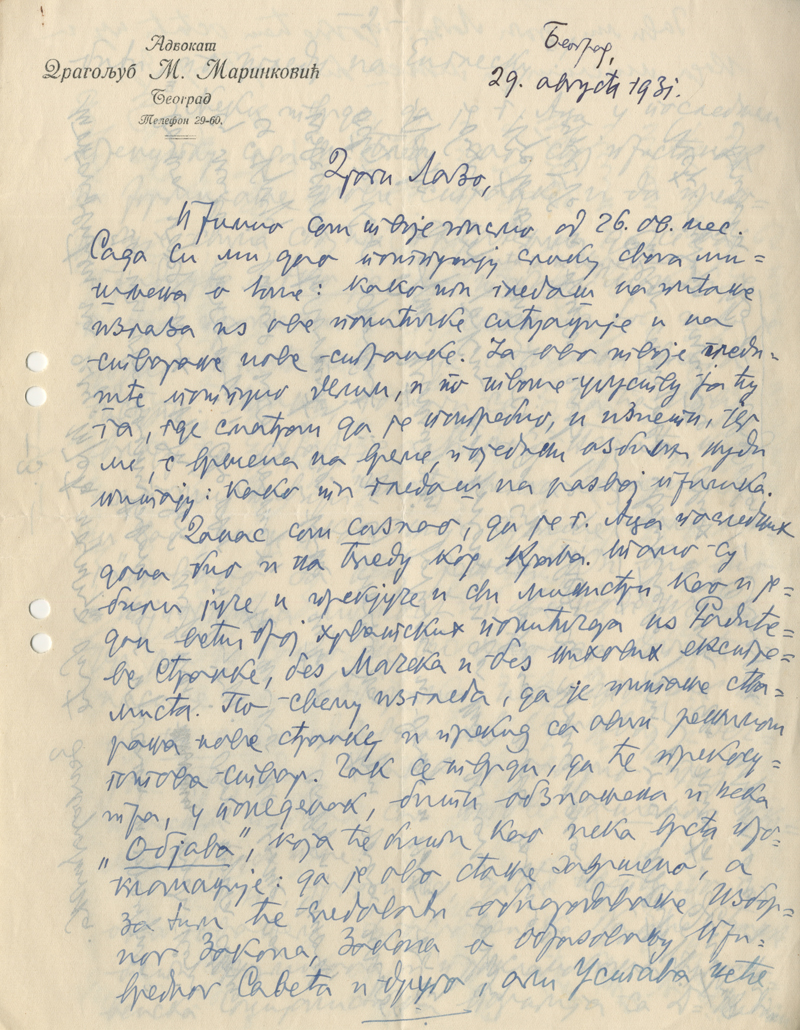 Адвокат
Драгољуб М. Маринковић
Београд
Телефон 29-60.
Београд,
29. август 1931.
Драги Лазо,
Примио сам твоје писмо од 26. ов. мес.
Сада си ми дао потпунију слику свога ми=
шљења о томе: како ти гледаш на питање
излаза из ове политичке ситуације и на
стварање нове странке. Ја ово твоје гледи-
ште потпуно делим, и по твоме упутству ја ћу
га, где сматрам да је потребно, и изнети, јер
ме, с времена на време, поједини озбиљни људи
питају: како ти гледаш на развој прилика.
Данас сам сазнао, да је г. Аца последњих
дана био и на Бледу код Краља. Тамо су
били јуче и прекјуче и сви министри као и је=
дан већи број хрватских политичара из Радиће=
ве странке, без Мачека и без њихових екстре=
миста. По свему изгледа, да је питање ства=
рања нове странке и прекид са овим режимом
готова ствар. Чак се тврди, да ће прекосу=
тра, у понедељак, бити објављена и нека
„Објава“, која ће бити као нека врста про-
кламације: да је ово стање завршено, а
за тим ће следовати обнародовање Избор-
ног Закона, Закона о образовању При-
вредног Савета и друго, али Устава неће